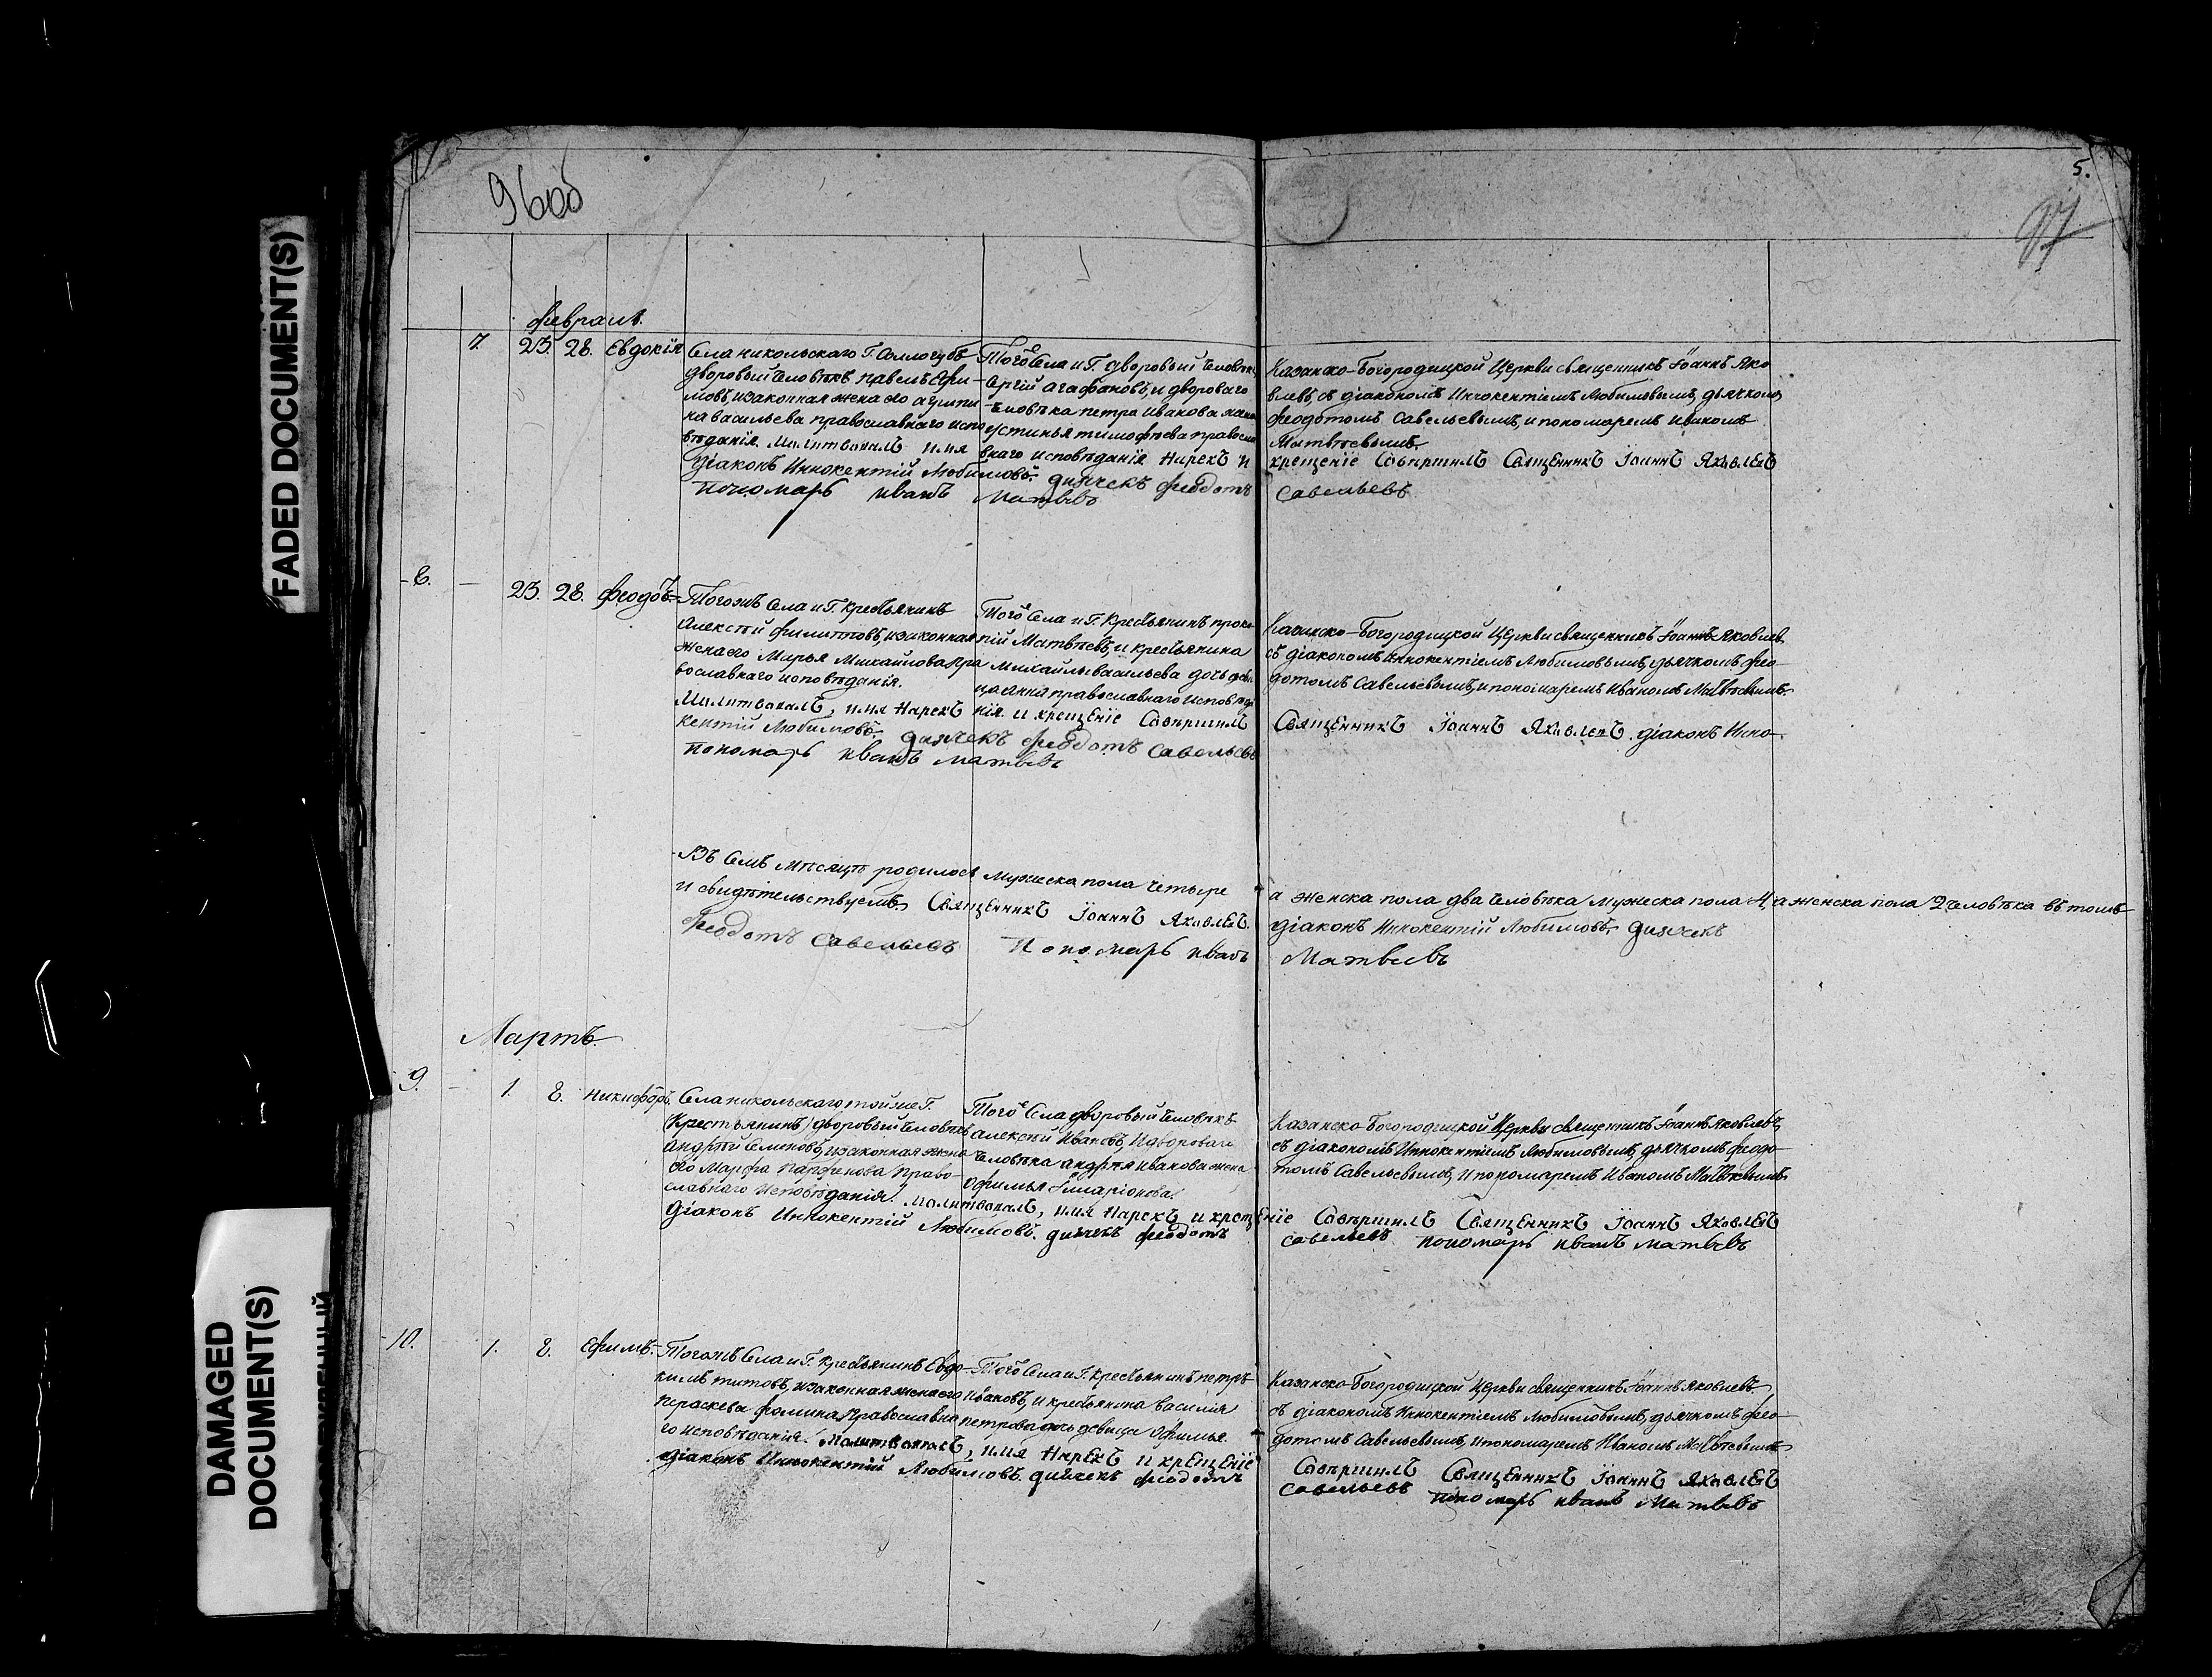 FADED DOCUMENT(S)
DAMAGED
DOCUMENT(S)
96об
5.
97
февраль.
7. 23. 28. Евдокія
Села никольскаго Г. Соллогубъ
дворовый человѣкъ павелъ Ефи-
мовъ, изаконная жена его агрипи-
на васильева православнаго испо
вѣданія. Молитвовалъ имя
діаконъ Иннокентій Любимовъ. дьячекъ феодотъ
пономарь иванъ Матвѣвъ
Того Села и Г. дворовый человѣкъ
Сергій агафоновъ, и двороваго
человѣка петра иванова жена
устинья тимофѣева правосла
внаго исповѣданія Нарекъ и
Казанско-Богородицкой Церкви священникъ Іоаннъ Яко
влевъ, съ діакономъ Иннокентіемъ Любимовымъ, дьячкомъ
феодотомъ Савельевымъ, и пономаремъ иваномъ
Матвѣевымъ.
крещеніе Совершилъ Священникъ Іоаннъ Яковлевъ
Савельевъ
8. 23. 28. Феодоръ
Тогожъ Села и Г. Крестьянинъ
Алексѣй филиповъ, изаконная
жена его Марья Михайлова пра
вославнаго исповѣданія.
Молитвовалъ, имя Нарекъ
кентій Любимовъ. дьячекъ феодотъ Савельевъ
пономарь иванъ матвѣвъ
Того Села и Г. Крестьянинъ проко-
пій Матвѣевъ, и крестьянина
михайлы васильева дочь деви
ца анна православнаго исповѣда
нія. и крещеніе Совершилъ
Казанско-Богородицкой Церкви священникъ Іоаннъ Яковлевъ
съ діакономъ Иннокентіемъ Любимовымъ, дьячкомъ фео-
дотомъ Савельевымъ, и пономаремъ Иваномъ Матвѣевымъ.
Священникъ Іоаннъ Яковлевъ. діаконъ Инно-
Въ Семъ Мѣсяцѣ родилось мужеска пола четыре
а женска пола два человѣка мужеска пола 4, а женска пола 2 человѣка въ томъ
и свидѣтельствуемъ Священникъ Іоаннъ Яковлевъ.
діаконъ Иннокентій Любимовъ. дьячекъ
феодотъ савельевъ Пономарь иванъ
Матвѣвъ
Мартъ.
9. 1. 8. Никифоръ.
Села никольскаго тойже Г.
(Крестьянинъ) дворовый человѣкъ
андрѣй Семеновъ, изаконная жена
его Марфа парфенова Право
славнаго исповѣданія. Молитвовалъ, имя Нарекъ и крещеніе Совершилъ Священникъ Іоаннъ Яковлевъ
діаконъ Иннокентій Любимовъ. дьячекъ феодотъ
савельевъ пономарь иванъ матвѣвъ
Того Села дворовый человѣкъ
алексѣй Ивановъ, и двороваго
человѣка андрея иванова жена
Офимья Иларіонова.
Казанско-Богородицкой Церкви священникъ Іоаннъ Яковлевъ,
съ діакономъ Иннокентіемъ Любимовымъ, дьячкомъ феодо-
томъ Савельевымъ, и пономаремъ Иваномъ Матвѣевымъ.
10. 1. 8. Ефимъ.
Тогожъ Села и Г. Крестьянинъ Евдо-
кимъ титовъ, изаконная жена его
параскева фомина Православна
го исповѣданія. Молитвовалъ, имя Нарекъ и крещеніе
діаконъ Иннокентій Любимовъ. дьячекъ феодотъ
Того Села и Г. Крестьянинъ петръ
Ивановъ, и крестьянина василія
петрова дочь девица Офимья.
Казанско-Богородицкой Церкви священникъ Іоаннъ Яковлевъ
съ діакономъ Иннокентіемъ Любимовымъ, дьячкомъ фео-
дотомъ Савельевымъ, и пономаремъ Иваномъ Матвѣевымъ
Совершилъ Священникъ Іоаннъ Яковлевъ
Савельевъ пономарь иванъ Матвѣвъ